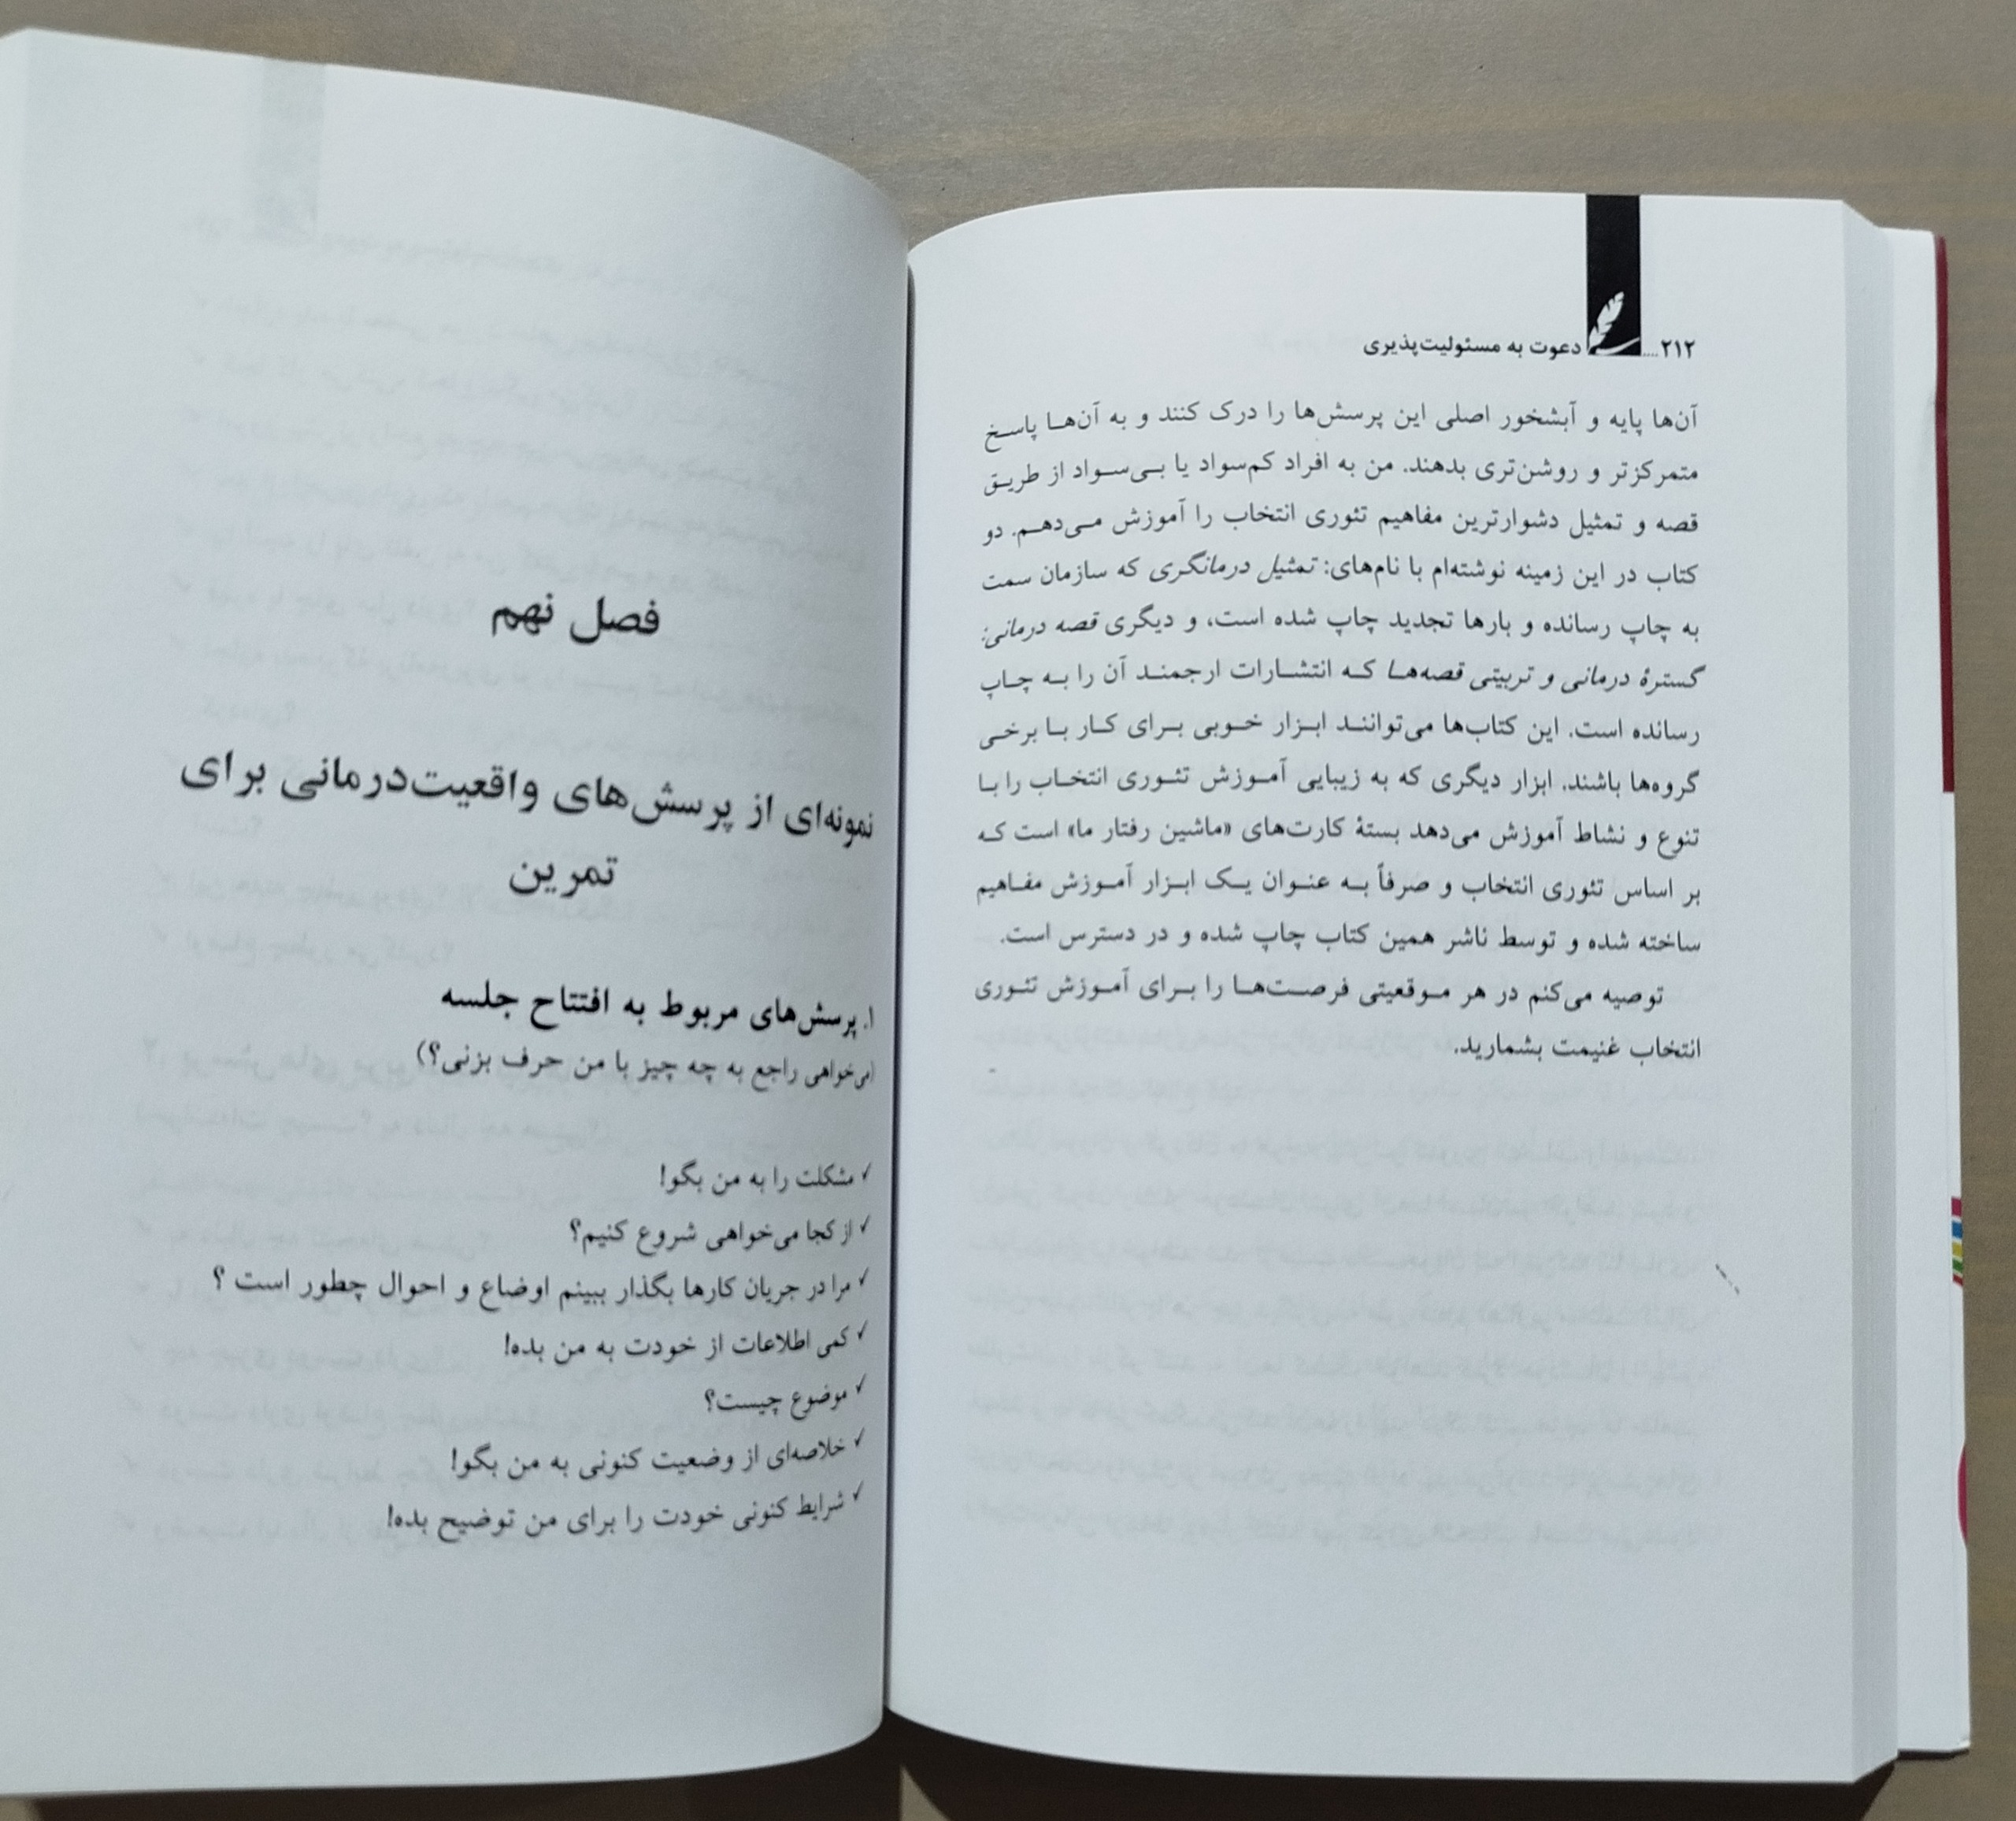 ۲۱۲.... دعوت به مسئولیت‌پذیری
آن‌ها پایه و آبشخور اصلی این پرسش‌ها را درک کنند و به آن‌هـا پاسـخ
متمرکزتر و روشن‌تری بدهند. من به افراد کم‌سواد یا بـی‌سـواد از طریـق
قصه و تمثیل دشوارترین مفاهیم تئوری انتخاب را آموزش مـی‌دهـم. دو
کتاب در این زمینه نوشته‌ام با نام‌های: تمثیل درمانگری که سازمان سمت
به چاپ رسانده و بارها تجدید چاپ شده است، و دیگری قصه درمانی:
گسترهٔ درمانی و تربیتی قصه‌هـا کـه انتشـارات ارجمنـد آن را بـه چـاپ
رسانده است. این کتاب‌ها می‌تواننـد ابـزار خـوبی بـرای کـار بـا برخـی
گروه‌ها باشند. ابزار دیگری که به زیبایی آمـوزش تئـوری انتخـاب را بـا
تنوع و نشاط آموزش می‌دهد بستهٔ کارت‌های «ماشین رفتار ما» است کـه
بر اساس تئوری انتخاب و صرفاً بـه عنـوان یـک ابـزار آمـوزش مفـاهیم
ساخته شده و توسط ناشر همین کتاب چاپ شده و در دسترس است.
توصیه می‌کنم در هر مـوقعیتی فرصـت‌هـا را بـرای آمـوزش تئـوری
انتخاب غنیمت بشمارید.
فصل نهم
نمونه‌ای از پرسش‌های واقعیت‌درمانی برای
تمرین
۱. پرسش‌های مربوط به افتتاح جلسه
(می‌خواهی راجع به چه چیز با من حرف بزنی؟)
✓ مشکلت را به من بگو!
✓ از کجا می‌خواهی شروع کنیم؟
✓ مرا در جریان کارها بگذار ببینم اوضاع و احوال چطور است ؟
✓ کمی اطلاعات از خودت به من بده!
✓ موضوع چیست؟
✓ خلاصه‌ای از وضعیت کنونی به من بگو!
✓ شرایط کنونی خودت را برای من توضیح بده!